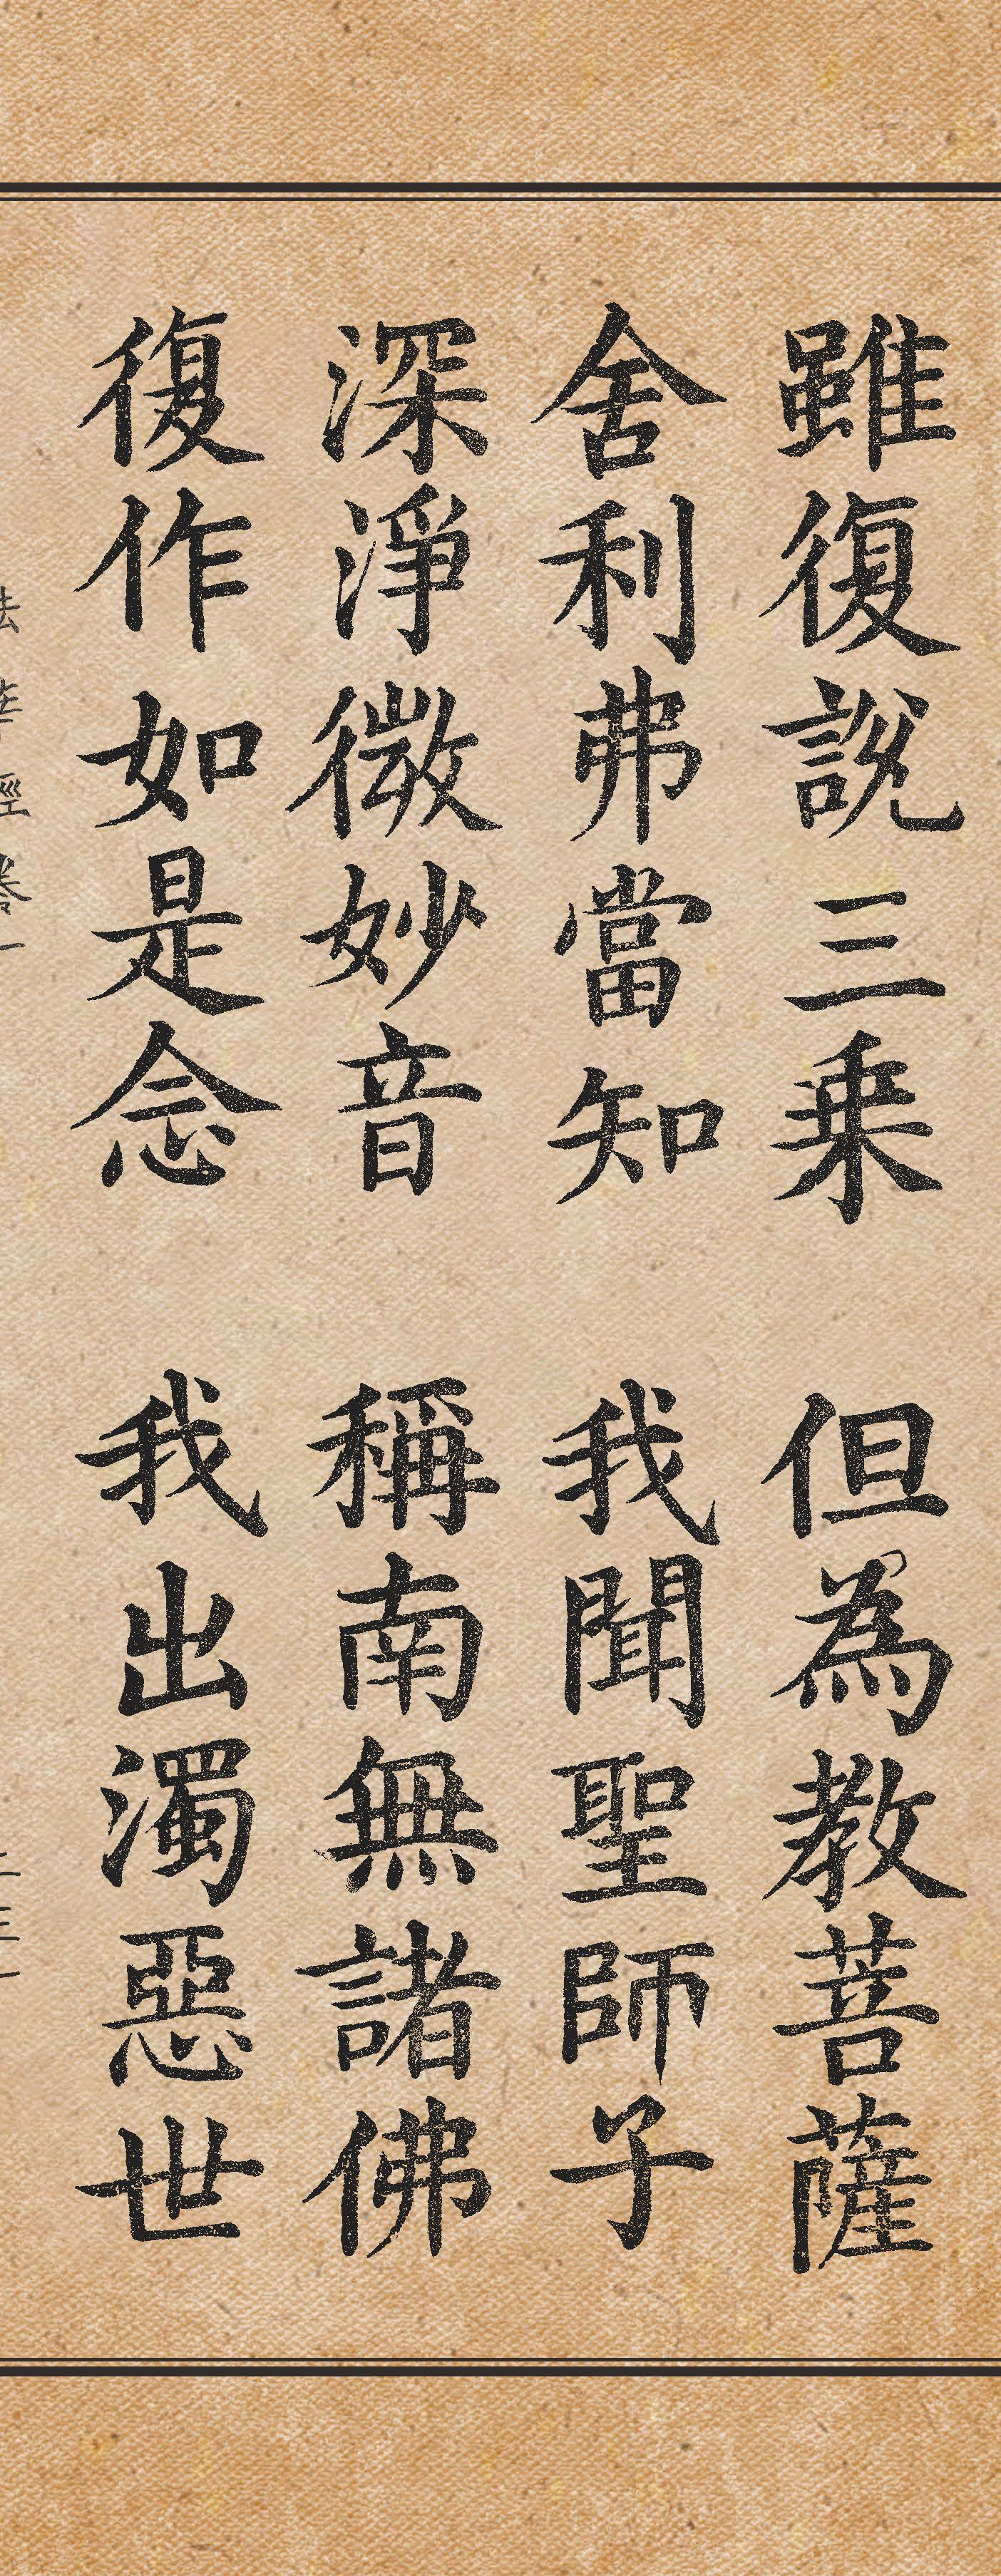 雖復說三乘 但為教菩薩
舍利弗當知 我聞聖師子
深淨微妙音 稱南無諸佛
復作如是念 我出濁惡世